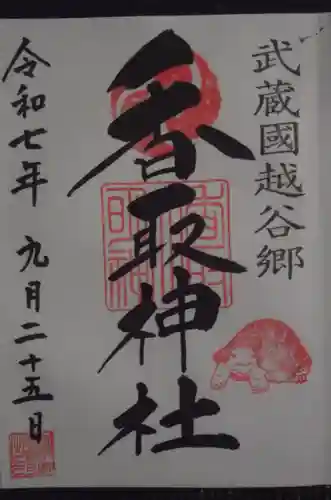 武蔵國越谷郷
香取神社
令和七年 九月二十五日